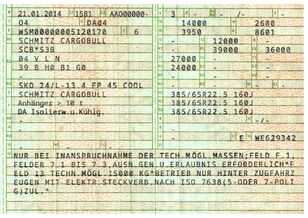 21.01.2014 1581 AAO00000- 3 - - / -
04 DA04 14000 2600
WSM00000005120170 6 3950 8601
SCHMITZ CARGOBULL - 12000 -
SCB*S3B - 39000 36000
04 V L N 27000 - -
39 B H0 B1 G0 24000 - -
SKO 24/L-13.4 FP 45 COOL
SCHMITZ CARGOBULL 385/65R22.5 160J
Anhänger > 10 t 385/65R22.5 160J
DA Isolierw.u.Kühlg. 385/65R22.5 160J
E WE629342
NUR BEI INANSPRUCHNAHME DER TECH.MÖGL.MASSEN;FELD F.1,
FELDER 7.1 BIS 7.3,AUSN.GEN.U.ERLAUBNIS ERFORDERLICH*F
ELD 13 TECHN MÖGL.15000 KG*BETRIEB NUR HINTER ZUGFAHRZ
EUGEN MIT ELEKTR.STECKVERB.NACH ISO 7638(5-ODER 7-POLI
G)ZUL.*